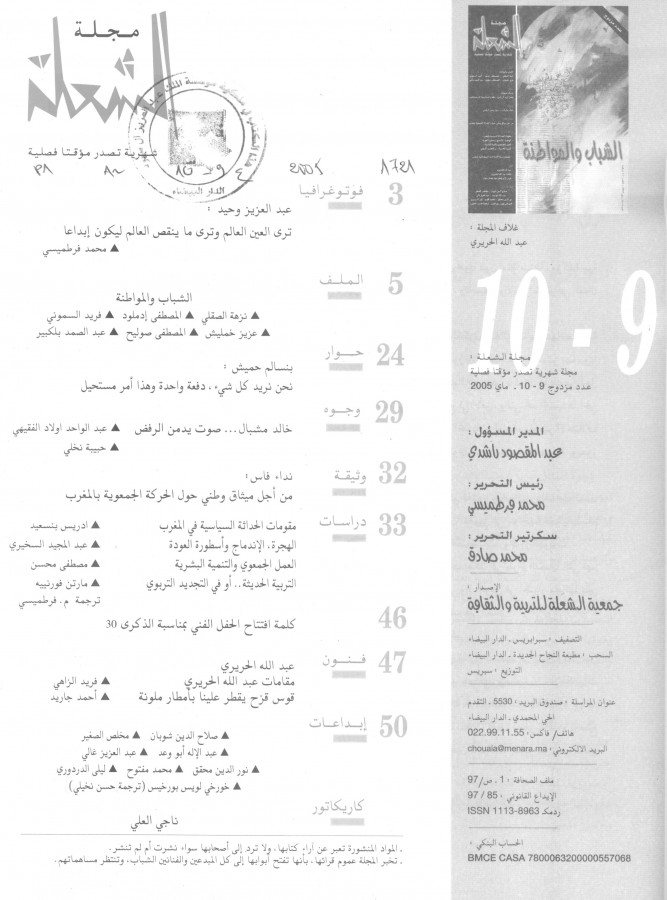 مجلة
الشعلة
شهرية تصدر مؤقتا فصلية
الدار البيضاء
2005
3 فوتوغرافيا
عبد العزيز وحيد :
ترى العين العالم وترى ما ينقص العالم ليكون إبداعا
▲ محمد فرطميسي
5 الملف
الشباب والمواطنة
▲ نزهة الصقلي ▲ المصطفى إدملود ▲ فريد السموني
▲ عزيز خمليش ▲ المصطفى صوليح ▲ عبد الصمد بلكبير
24 حوار
بنسالم حميش :
نحن نريد كل شيء، دفعة واحدة وهذا أمر مستحيل
29 وجوه
خالد مشبال... صوت يدمن الرفض ▲ عبد الواحد اولاد الفقيهي
▲ حبيبة نخلي
32 وثيقة
نداء فاس:
من أجل ميثاق وطني حول الحركة الجمعوية بالمغرب
33 دراسات
مقومات الحداثة السياسية في المغرب ▲ ادريس بنسعيد
الهجرة، الإندماج وأسطورة العودة ▲ عبد المجيد السخيري
العمل الجمعوي والتنمية البشرية ▲ مصطفى محسن
التربية الحديثة.. أو في التجديد التربوي ▲ مارتن فورنييه
ترجمة م. فرطميسي
46 كلمة افتتاح الحفل الفني بمناسبة الذكرى 30
47 فنون
عبد الله الحريري
مقامات عبد الله الحريري ▲ فريد الزاهي
قوس قزح يقطر علينا بأمطار ملونة ▲ أحمد جاريد
50 إبداعات
▲ صلاح الدين شوبان ▲ مخلص الصغير
▲ عبد الإله أبو وعد ▲ عبد العزيز غالي
▲ نور الدين محقق ▲ محمد مفتوح ▲ ليلى الدردوري
▲ خورخي لويس بورخيس (ترجمة حسن نخيلي)
كاريكاتور
ناجي العلي
. المواد المنشورة تعبر عن آراء كتابها، ولا ترد إلى أصحابها سواء نشرت أم لم تنشر.
. تخبر المجلة عموم قرائها، بأنها تفتح أبوابها إلى كل المبدعين والفنانين الشباب، وتنتظر مساهماتهم.
مجلة
الشعلة
الشباب والمواطنة
غلاف المجلة :
عبد الله الحريري
10 - 9
مجلة الشعلة :
مجلة شهرية تصدر مؤقتا فصلية
عدد مزدوج 9 - 10 . ماي 2005
المدير المسؤول :
عبد المقصود راشدي
رئيس التحرير :
محمد فرطميسي
سكرتير التحرير :
محمد صادق
الإصدار :
جمعية الشعلة للتربية والثقافة
التصفيف : سبرابريس . الدار البيضاء
السحب : مطبعة النجاح الجديدة . الدار البيضاء
التوزيع : سبريس
عنوان المراسلة : صندوق البريد : 5530 . التقدم
الحي المحمدي . الدار البيضاء
هاتف/ فاكس: 022.99.11.55
البريد الالكتروني: chouala@menara.ma
ملف الصحافة : 1 . ص/97
الإيداع القانوني : 85 / 97
ردمك ISSN 1113-8963
الحساب البنكي :
BMCE CASA 7800063200000557068